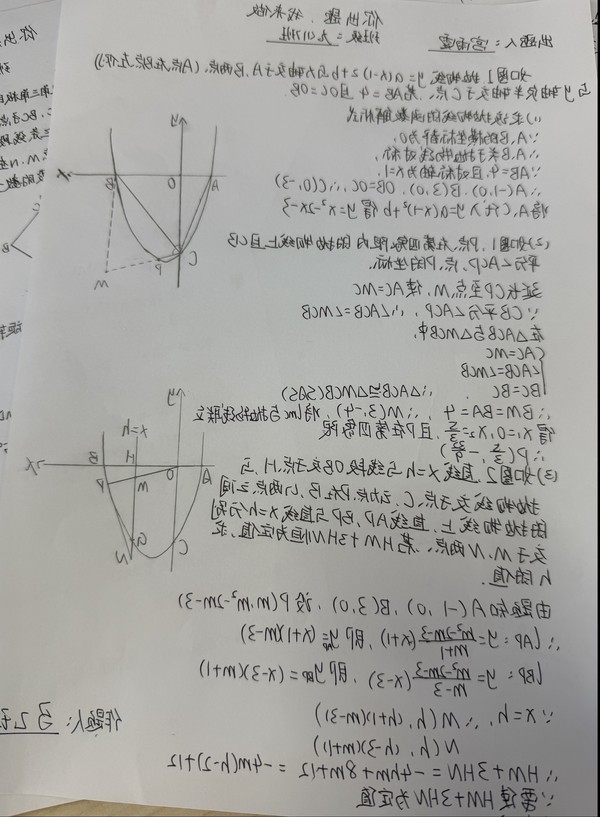 你出题，我来做
出题人：宫雨霏 班级：九(1)班
如图1，抛物线y=a(x-1)²+b与x轴交于A、B两点，(A点在B点左侧)
与y轴负半轴交于C点，若AB=4且OC=OB
(1)求该抛物线的函数解析式
∵A,B的纵坐标都为0,
∴A,B关于抛物线对称,
∵AB=4,且对称轴为x=1,
∴A(-1,0), B(3,0), OB=OC, ∴C(0,-3)
将A,C代入y=a(x-1)²+b 得y=x²-2x-3
(2)如图1, P点在第四象限内的抛物线上且CB
平分∠ACP, 求P的坐标.
延长CP至点M, 使AC=MC
∵CB平分∠ACP, ∴∠ACB=∠MCB
在△ACB与△MCB中,
AC=MC
∠ACB=∠MCB
BC=BC ∴△ACB≌△MCB(SAS)
∴BM=BA=4, ∴M(3,-4), 将lmc与抛物线联立
得x₁=0, x₂=5/3, 且P在第四象限
∴P(5/3, -32/9)
(3)如图2, 直线x=h与线段OB交于点H, 与
抛物线交于点G, 动点P在B、G两点之间
的抛物线上, 直线AP、BP与直线x=h分别
交于M、N两点, 若HM+3HN恒为定值, 求
h的值.
由题知A(-1,0), B(3,0), 设P(m,m²-2m-3)
∴lAP: y=m²-2m-3/m+1(x+1), 即yAP=(x+1)(m-3)
lBP: y=m²-2m-3/m-3(x-3), 即yBP=(x-3)(m+1)
∵x=h, ∴M(h, (h+1)(m-3))
N(h, (h-3)(m+1))
∴HM+3HN=-4hm+8m+12=-4m(h-2)+12
∵需使HM+3HN为定值
作题人:
y
x
B
O
A
C
P
M
y
x=h
x
B
H
O
A
P
M
G
N
C